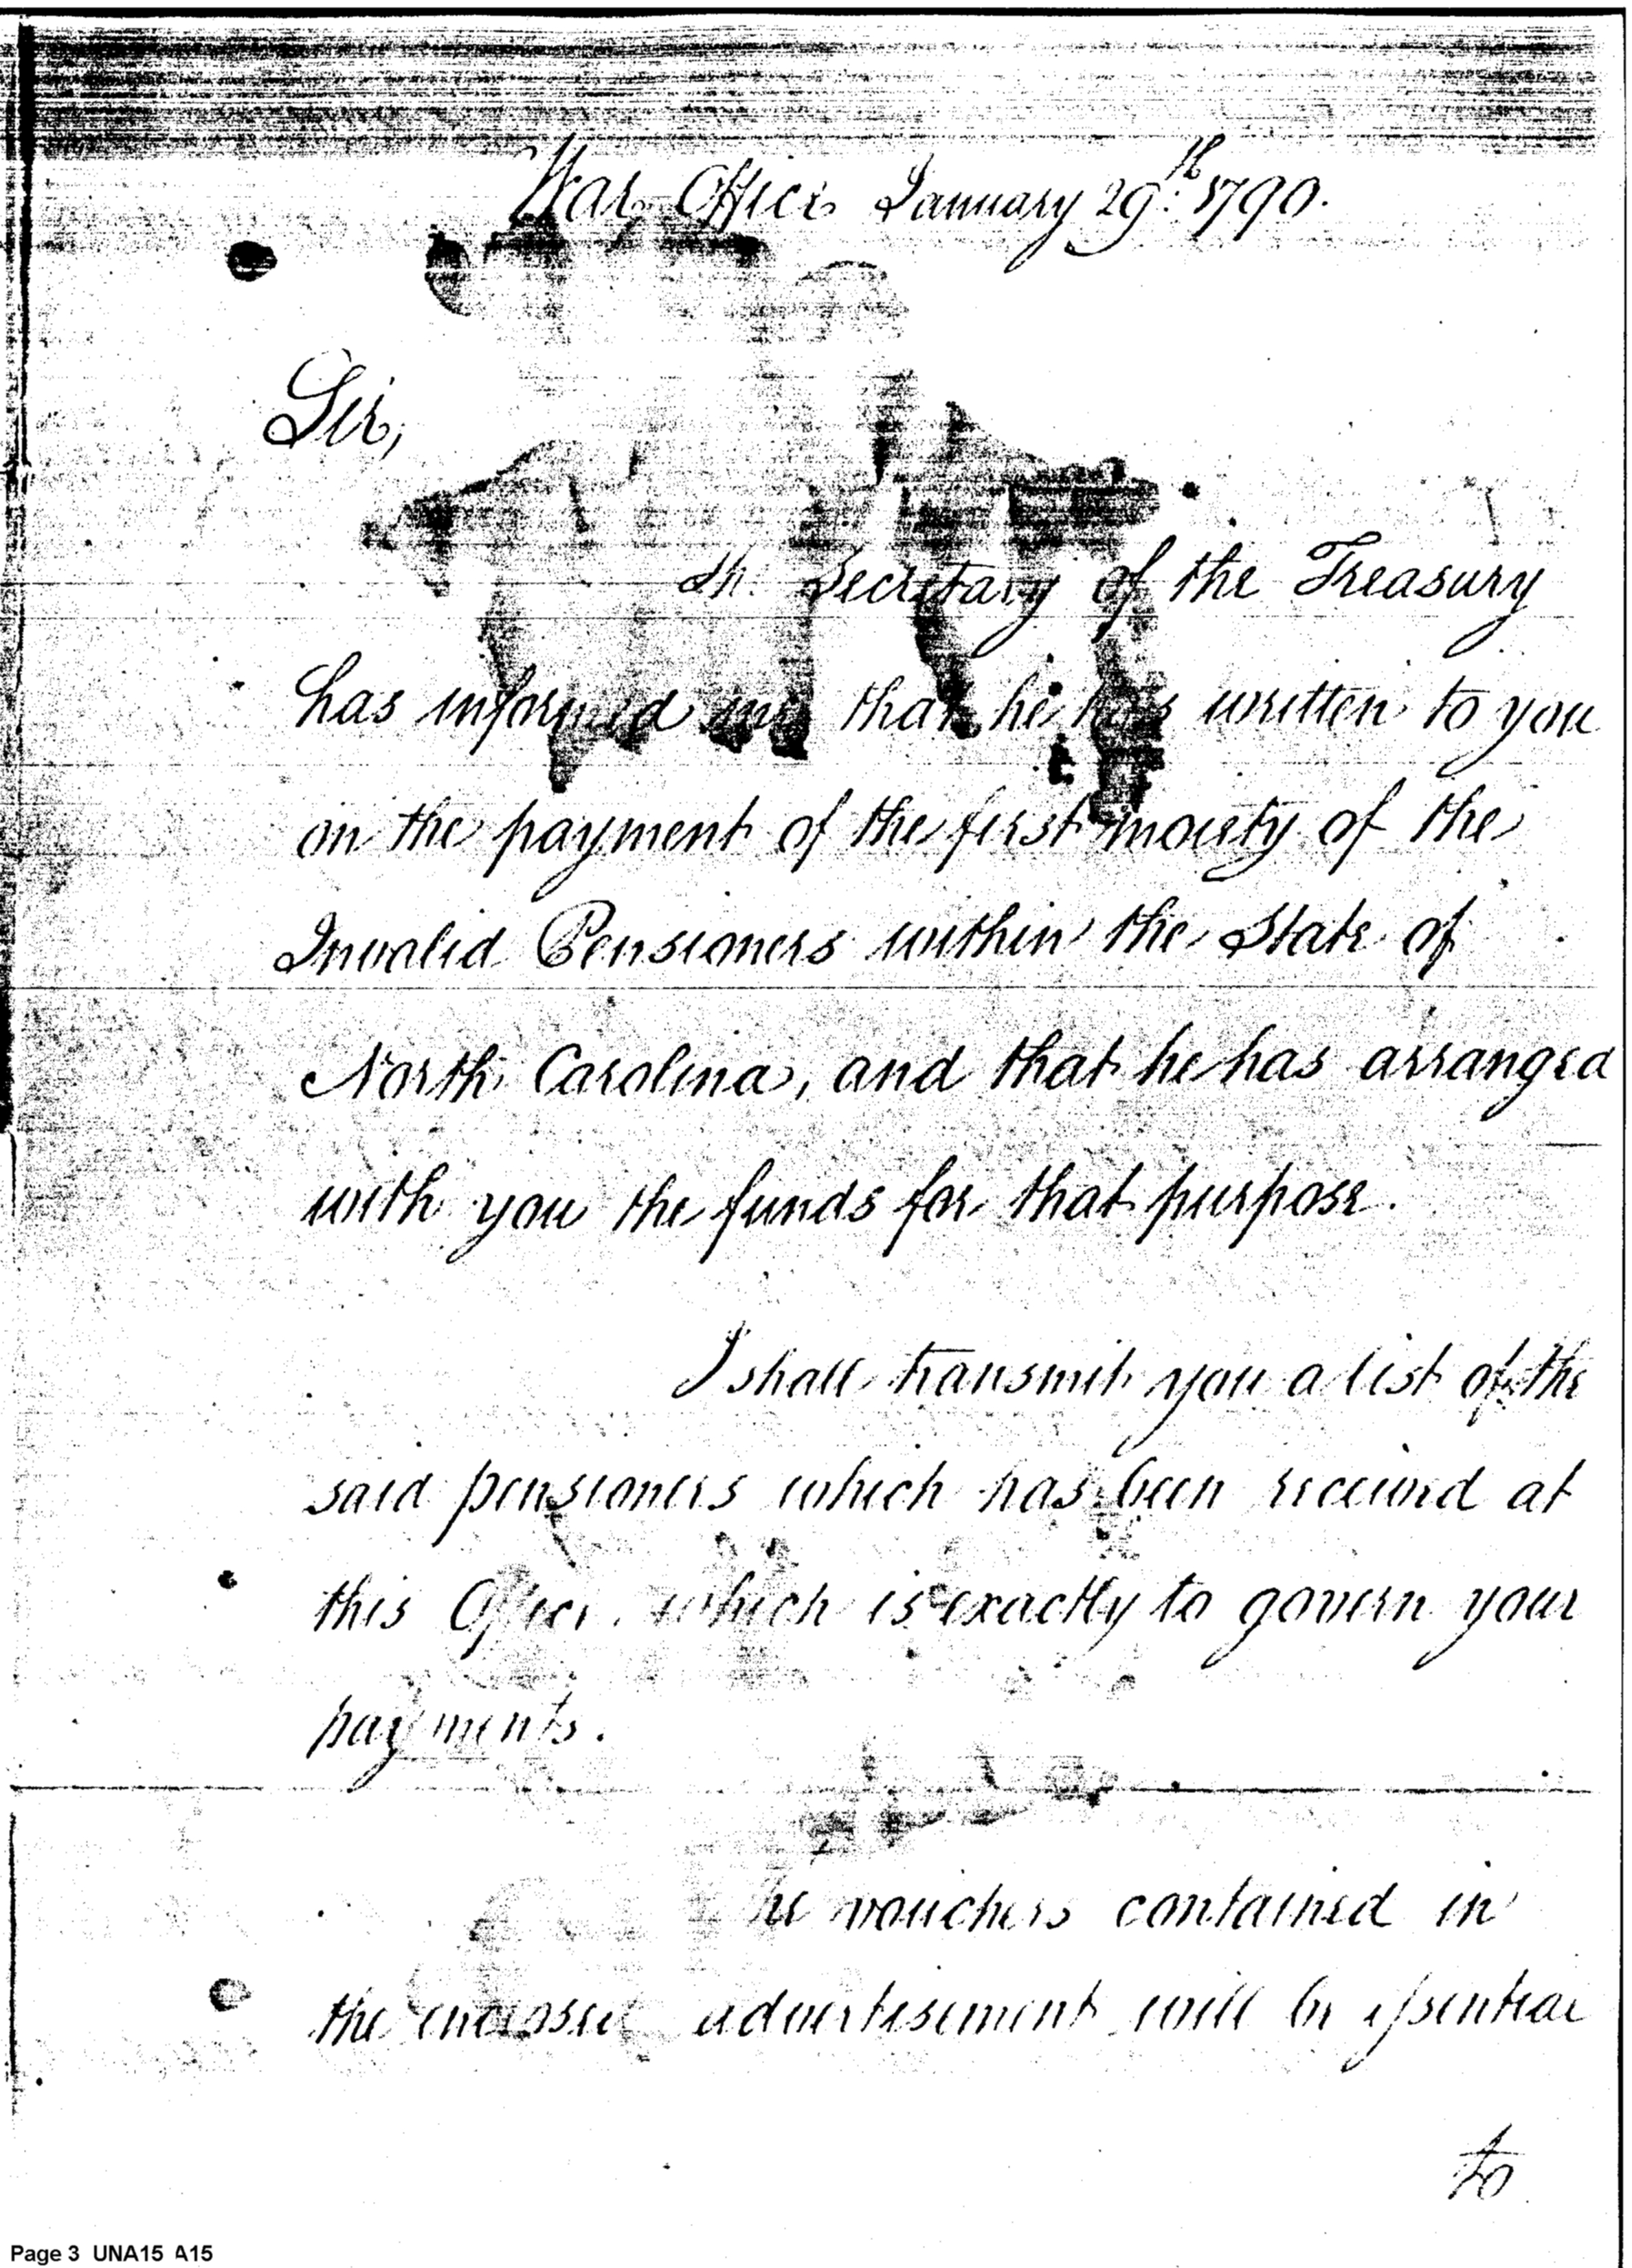 War Office January 29th. 1790.
Sir,
The Secretary of the Treasury
has informed me that he has written to you
on the payment of the first moiety of the
Invalid Pensioners within the State of
North Carolina, and that he has arranged
with you the funds for that purpose.
I shall transmit you a list of the
said pensioners which has been received at
this Office. which is exactly to govern your
payments.
he vouchers contained in
the enclosed advertisement will be essential
to
Page 3 UNA15 A15